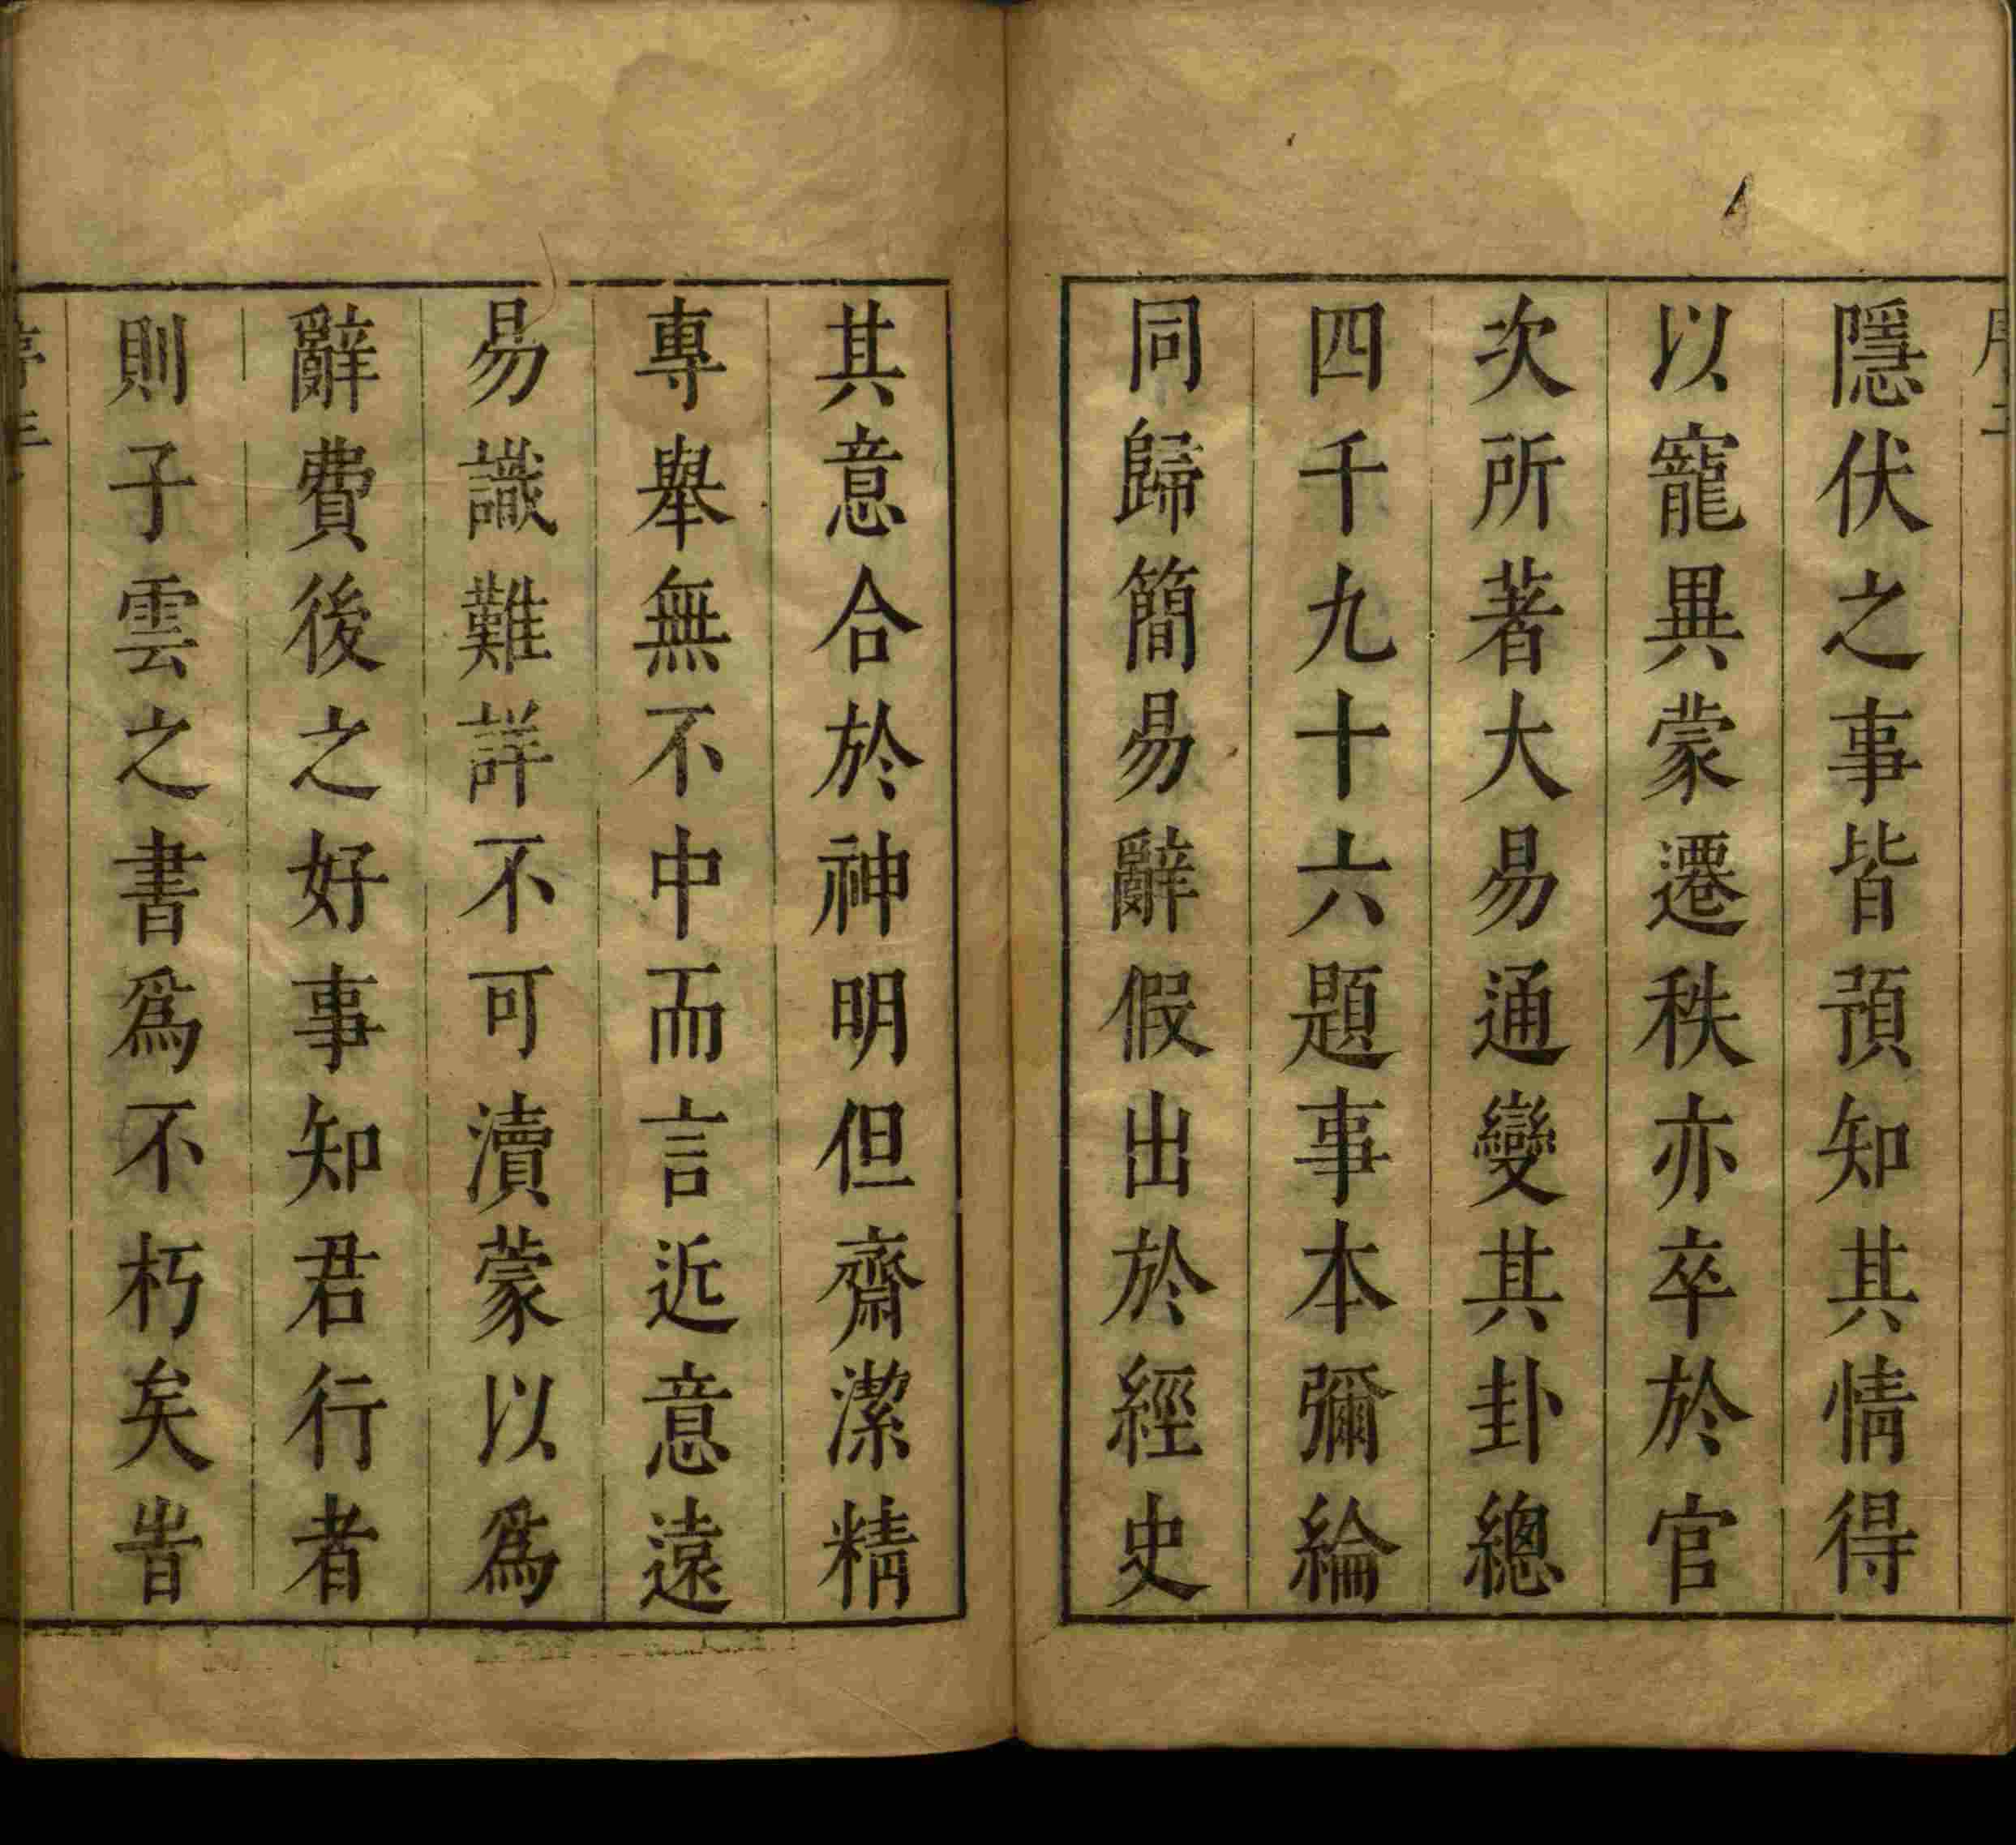 隱伏之事皆預知其情得
以寵異蒙遷秩亦卒於官
次所著大易通變其卦總
四千九十六題事本彌綸
同歸簡易辭假出於經史
其意合於神明但齋潔精
專舉無不中而言近意遠
易識難詳不可瀆蒙以為
辭費後之好事知君行者
則子雲之書為不朽矣旹